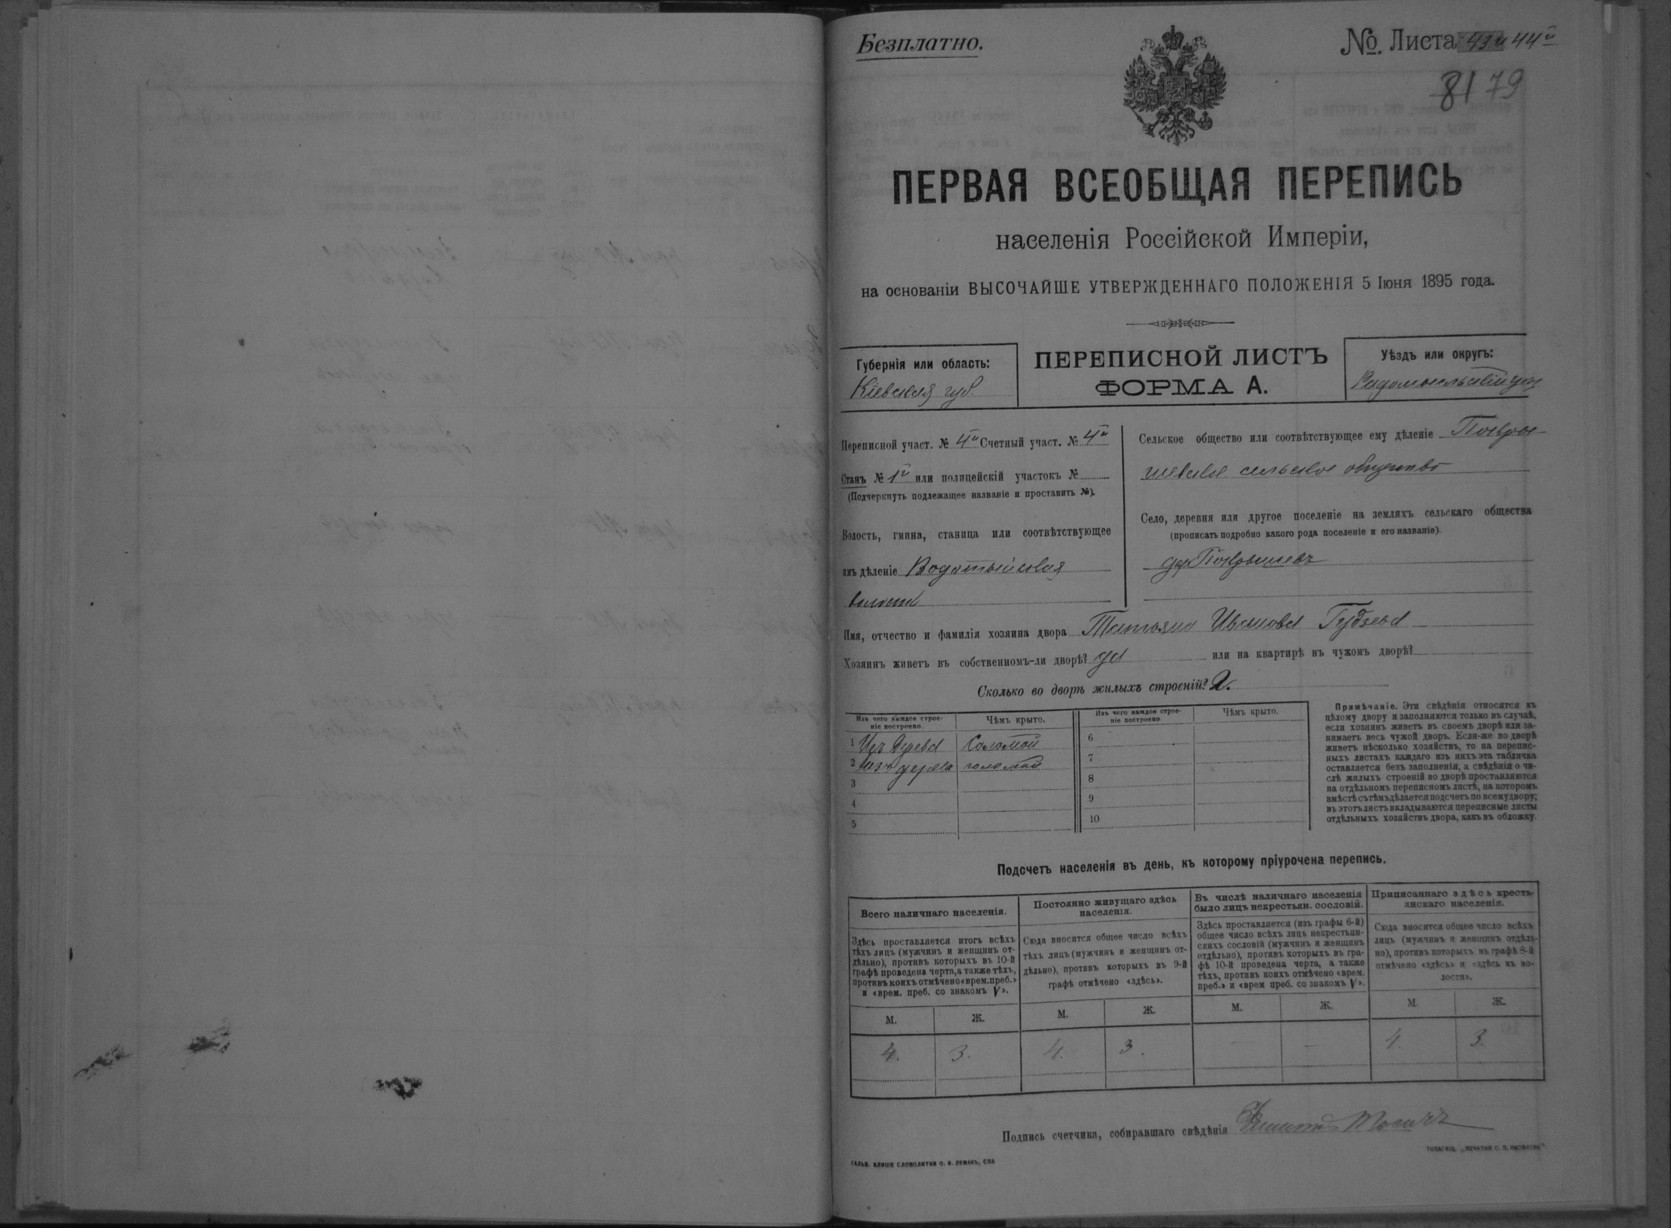 Безплатно.
№. Листа 44й
81 79
ПЕРВАЯ ВСЕОБЩАЯ ПЕРЕПИСЬ
населенія Россійской Имперіи,
на основаніи ВЫСОЧАЙШЕ УТВЕРЖДЕННАГО ПОЛОЖЕНІЯ 5 Іюня 1895 года.
Губернія или область:
Кіевская губ.
ПЕРЕПИСНОЙ ЛИСТЪ
ФОРМА А.
Уѣздъ или округъ:
Радомысльскій уѣз
Переписной участ. № 4й Счетный участ. № 4й
Станъ № 1й или полицейскій участокъ №
(Подчеркнуть подлежащее названіе и проставить №).
Волость, гмина, станица или соотвѣтствующее
имъ дѣленіе Водотыйская
волость
Сельское общество или соотвѣтствующее ему дѣленіе Покры-
шевское сельское общество
Село, деревня или другое поселеніе на земляхъ сельскаго общества
(прописать подробно какого рода поселеніе и его названіе).
дер. Покрышевъ
Имя, отчество и фамилія хозяина двора Татьяна Иванова
Хозяинъ живетъ въ собственномъ-ли дворѣ? да или на квартирѣ въ чужомъ дворѣ?
Сколько во дворѣ жилыхъ строеній? 2.
Изъ чего каждое строе-
ніе построено.
Чѣмъ крыто.
1 Изъ дерева Соломой
2 Изъ дерева соломой
3
4
5
Изъ чего каждое строе-
ніе построено.
Чѣмъ крыто.
6
7
8
9
10
Примѣчаніе. Эти свѣдѣнія относятся къ
цѣлому двору и заполняются только въ случаѣ,
если хозяинъ живетъ въ своемъ дворѣ или за-
нимаетъ весь чужой дворъ. Если-же во дворѣ
живетъ нѣсколько хозяйствъ, то на перепис-
ныхъ листахъ каждаго изъ нихъ эта табличка
оставляется безъ заполненія, а свѣдѣнія о чи-
слѣ жилыхъ строеній во дворѣ проставляются
на отдѣльномъ переписномъ листѣ, на которомъ
вмѣстѣ съ тѣмъ дѣлается подсчетъ по всему двору;
въ этотъ листъ вкладываются переписные листы
отдѣльныхъ хозяйствъ двора, какъ въ обложку.
Подсчетъ населенія въ день, къ которому пріурочена перепись.
Всего наличнаго населенія.
Здѣсь проставляется итогъ всѣхъ
тѣхъ лицъ (мужчинъ и женщинъ от-
дѣльно), противъ которыхъ въ 10-й
графѣ проведена черта, а также тѣхъ,
противъ коихъ отмѣчено «врем. преб.»
и «врем. преб. со знакомъ V».
М. Ж.
4. 3.
Постоянно живущаго здѣсь
населенія.
Сюда вносится общее число всѣхъ
тѣхъ лицъ (мужчинъ и женщинъ от-
дѣльно), противъ которыхъ въ 9-й
графѣ отмѣчено «здѣсь».
М. Ж.
4. 3.
Въ числѣ наличнаго населенія
было лицъ некрестьян. сословій.
Здѣсь проставляется (изъ графы 6-й)
общее число всѣхъ лицъ некрестьян-
скихъ сословій (мужчинъ и женщинъ
отдѣльно), противъ которыхъ въ гра-
фѣ 10-й проведена черта, а также
тѣхъ, противъ коихъ отмѣчено «врем.
преб.» и «врем преб. со знакомъ V».
М. Ж.
— —
Приписаннаго здѣсь кресть-
янскаго населенія.
Сюда вносится общее число всѣхъ
лицъ (мужчинъ и женщинъ отдѣль-
но), противъ которыхъ въ графѣ 8-й
отмѣчено «здѣсь» и «здѣсь въ во-
лости».
М. Ж.
4. 3.
Подпись счетчика, собиравшаго свѣдѣнія
ГАЛЬВ. КЛИШЕ СЛОВОЛИТНИ О. И. ЛЕМАНЪ, СПБ
ТОВАРИЩ. „ПЕЧАТНЯ С. П. ЯКОВЛЕВА"